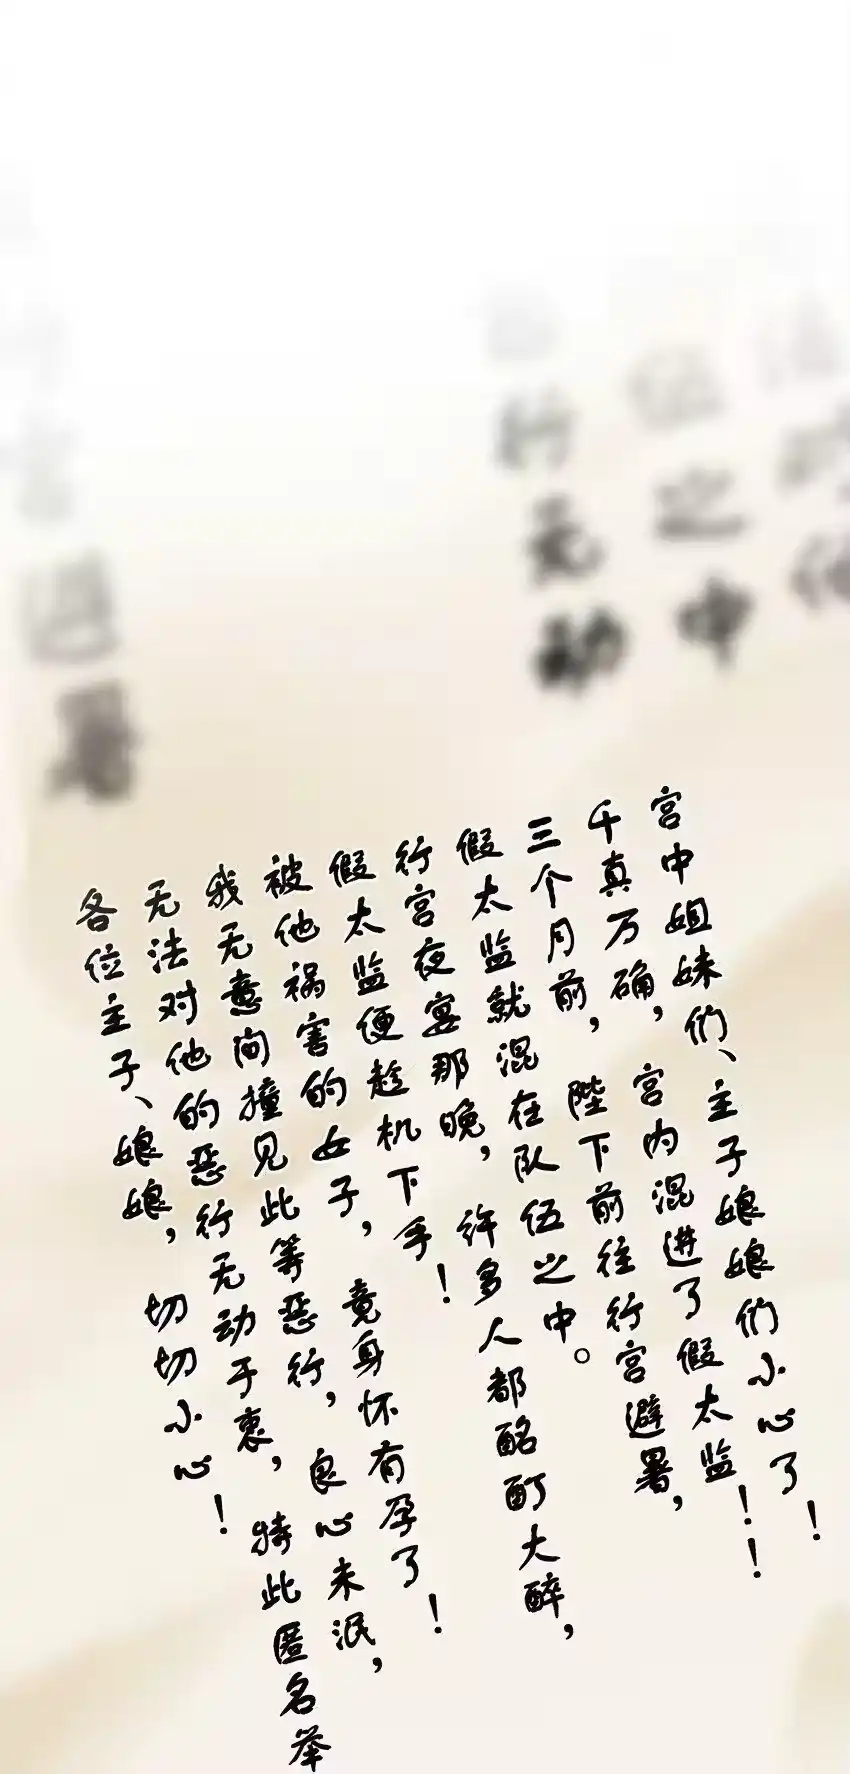 宫中姐妹们、主子娘娘们小心了！
千真万确，宫内混进了假太监！！
三个月前，陛下前往行宫避暑，
假太监就混在队伍之中。
行宫夜宴那晚，许多人都酩酊大醉，
假太监便趁机下手！
被他祸害的女子，竟身怀有孕了！
我无意间撞见此等恶行，良心未泯，
无法对他的恶行无动于衷，特此匿名举
各位主子、娘娘，切切小心！
行无动
伍之中
避暑